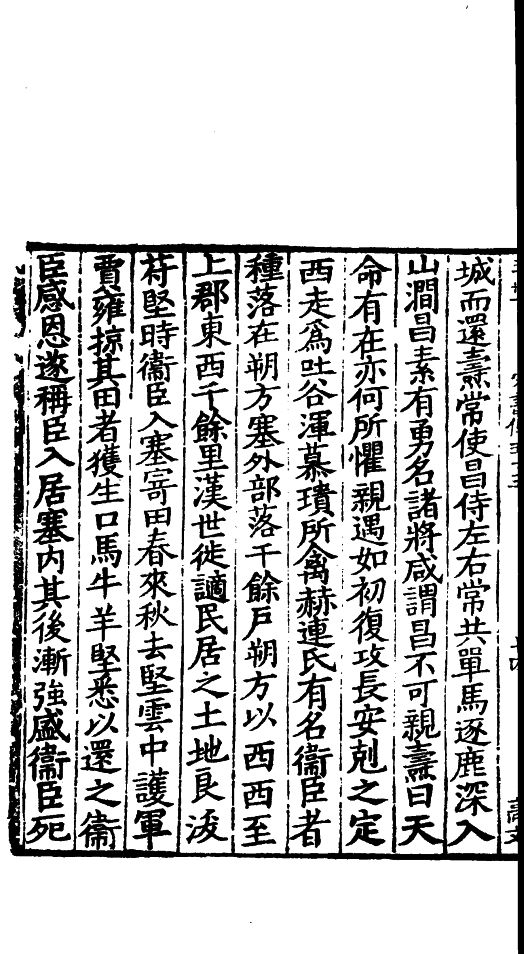 城而還燾常使昌侍左右常共單馬逐鹿深入
山澗昌素有勇名諸將咸謂昌不可親燾曰天
命有在亦何所懼親遇如初復攻長安剋之定
西走爲吐谷渾慕璝所禽赫連氏有名衞臣者
種落在朔方塞外部落千餘戸朔方以西西至
上郡東西千餘里漢世徙謫民居之土地良沃
苻堅時衞臣入塞寄田春來秋去堅雲中護軍
賈雍掠其田者獲生口馬牛羊堅悉以還之衞
臣感恩遂稱臣入居塞内其後漸強盛衞臣死